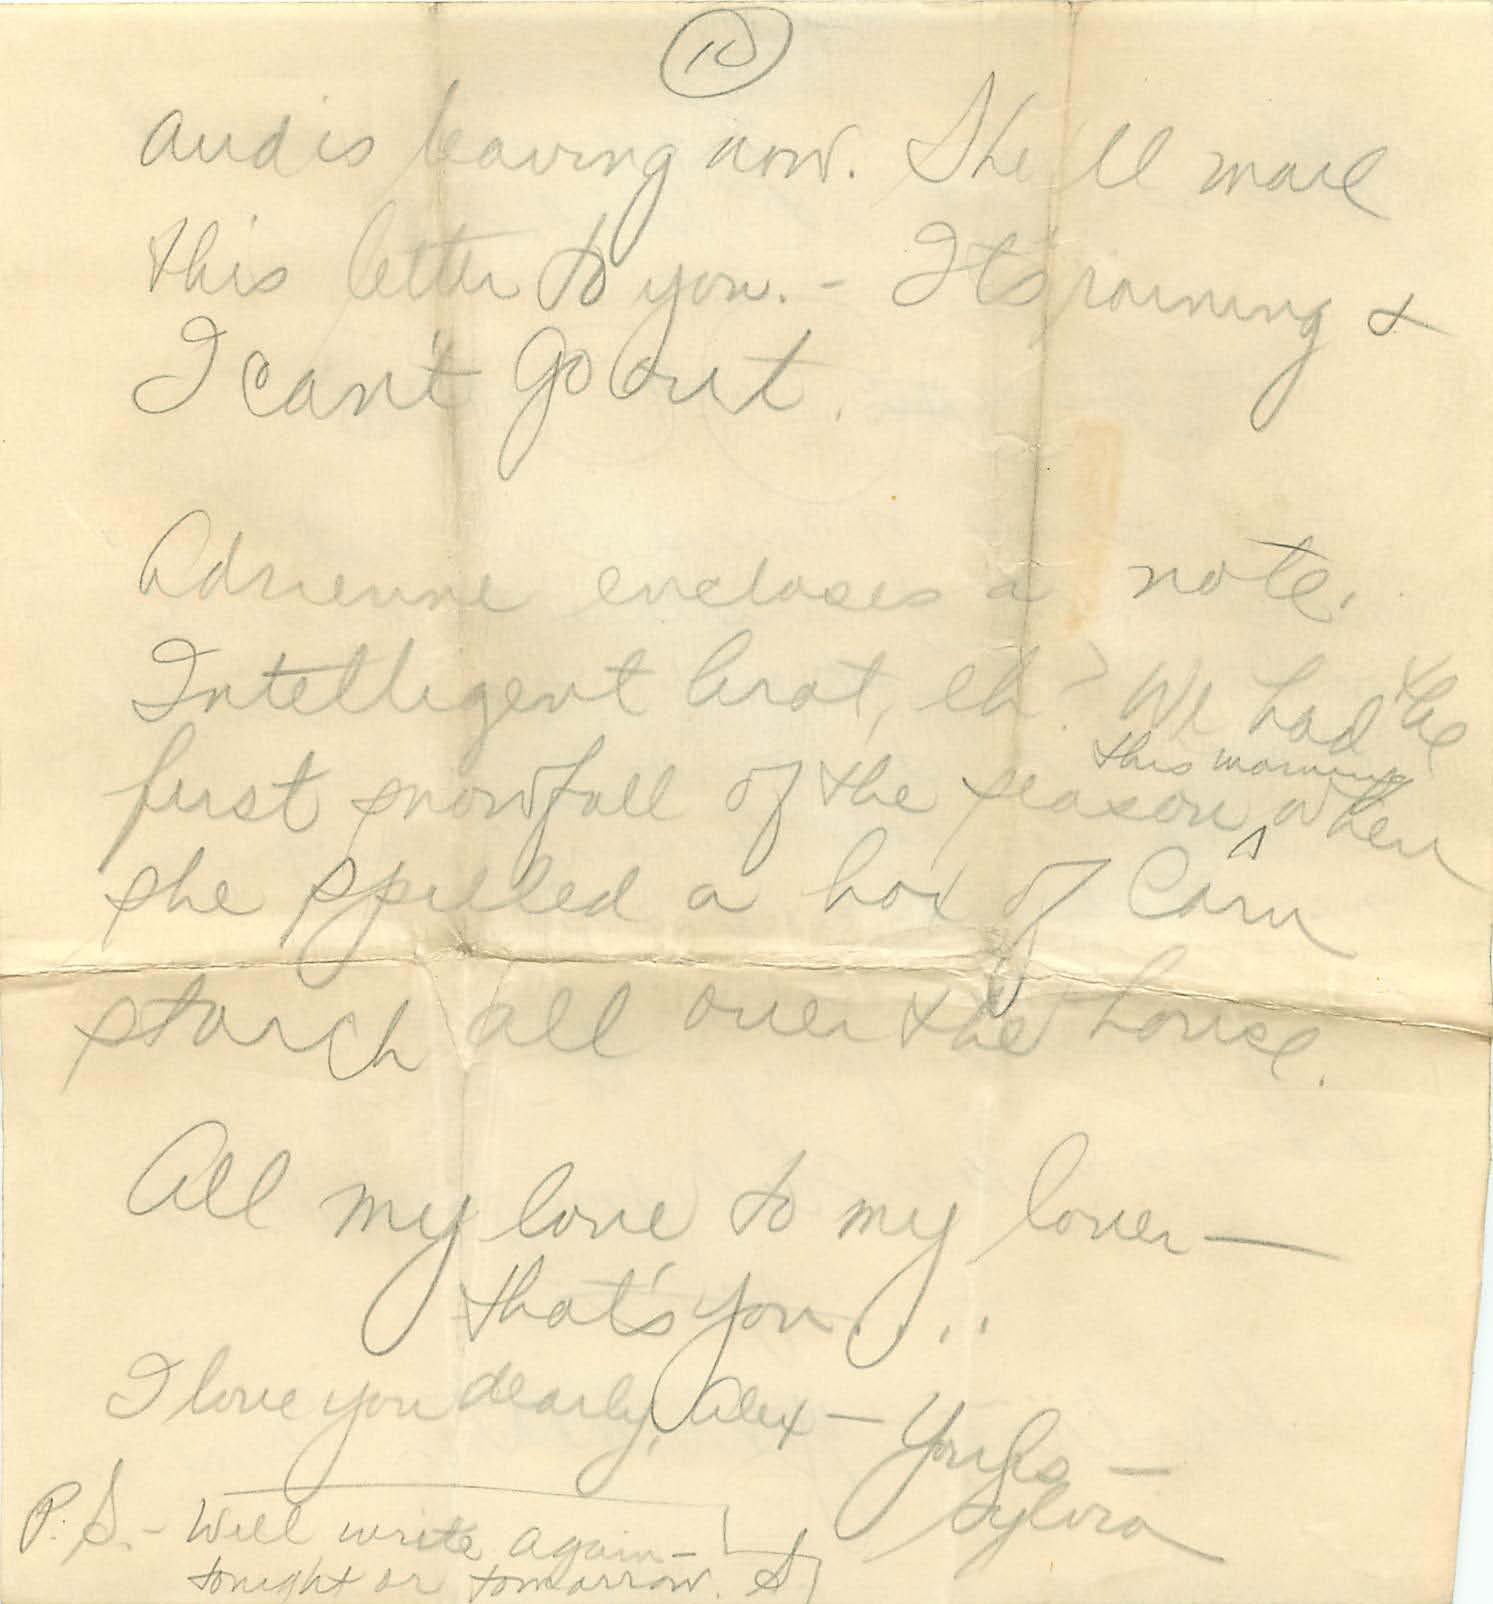 10
and is leaving now. She'll mail
this letter to you. - It's raining &
I can't go out.
Adrienne encloses a note.
Intelligent brat, eh? We had the
first snowfall of the season this morning when
she spilled a box of Corn
starch all over the house.
All my love to my lover —
that's you....
I love you dearly, Alex — Yours —
Sylvia
P.S. - Will write again -
tonight or tomorrow. S.